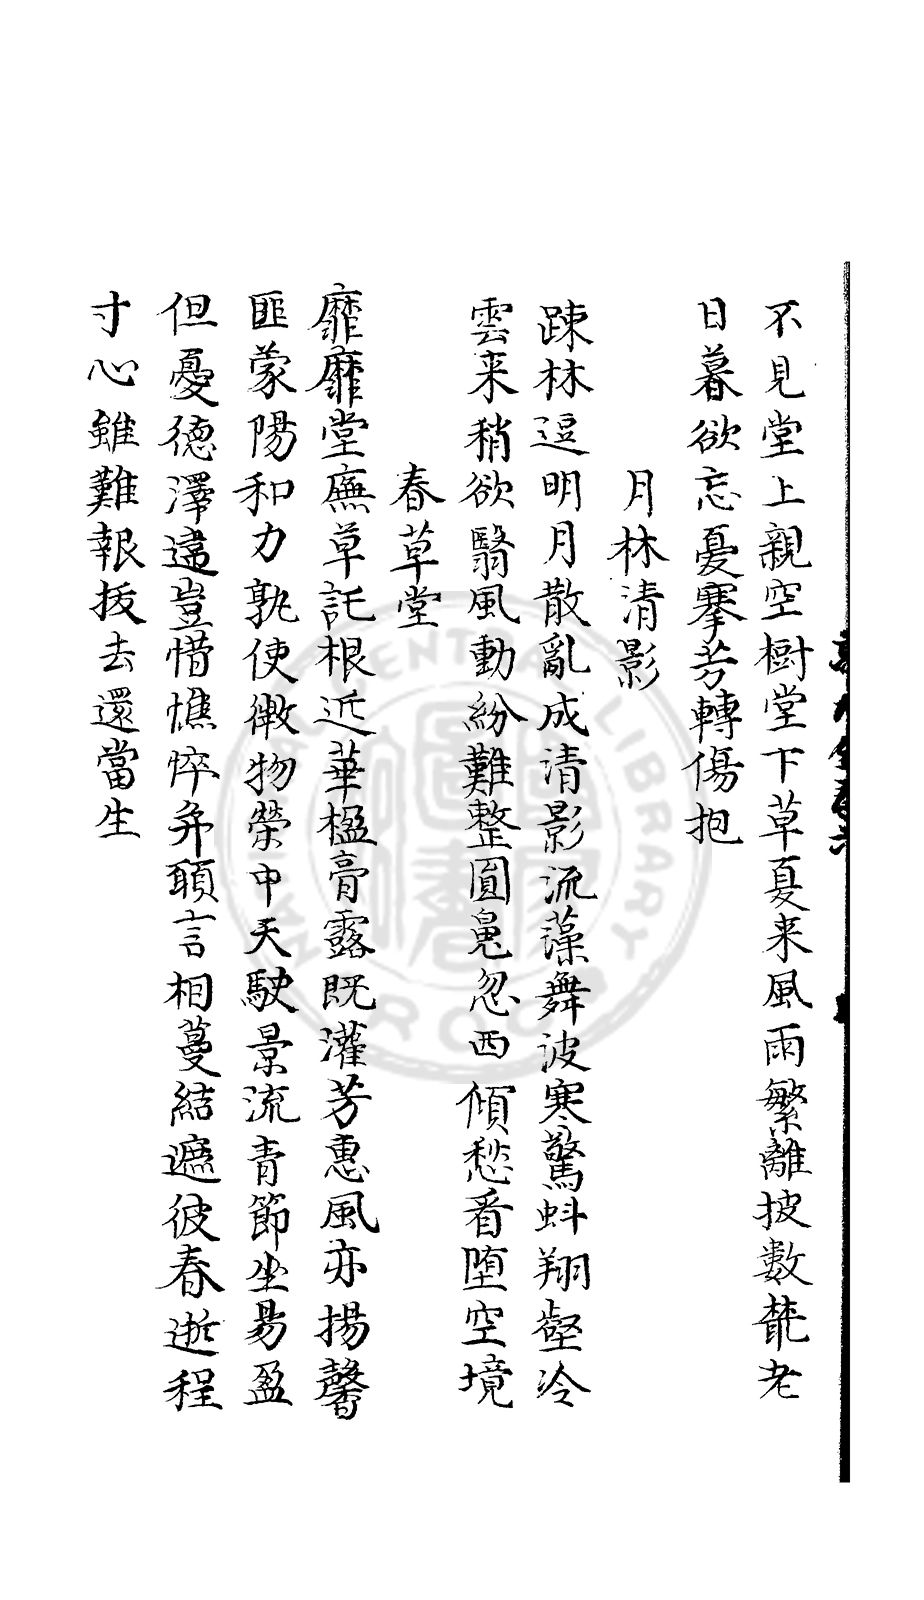 不見堂上親空樹堂下草夏来風雨繁離披數藂老
日暮欲忘憂搴芳轉傷抱
月林清影
疎林逗明月散亂成清影流藻舞波寒驚蚪翔壑冷
雲来稍欲翳風動紛難整圓兔忽西傾愁看墮空境
春草堂
靡靡堂廡草託根近華楹膏露既灌芳惠風亦揚馨
匪蒙陽和力孰使微物榮中天駛景流青節坐易盈
但憂德澤違豈惜憔悴并願言相蔓結遮彼春逝程
寸心雖難報拔去還當生
NATIONAL CENTRAL LIBRARY